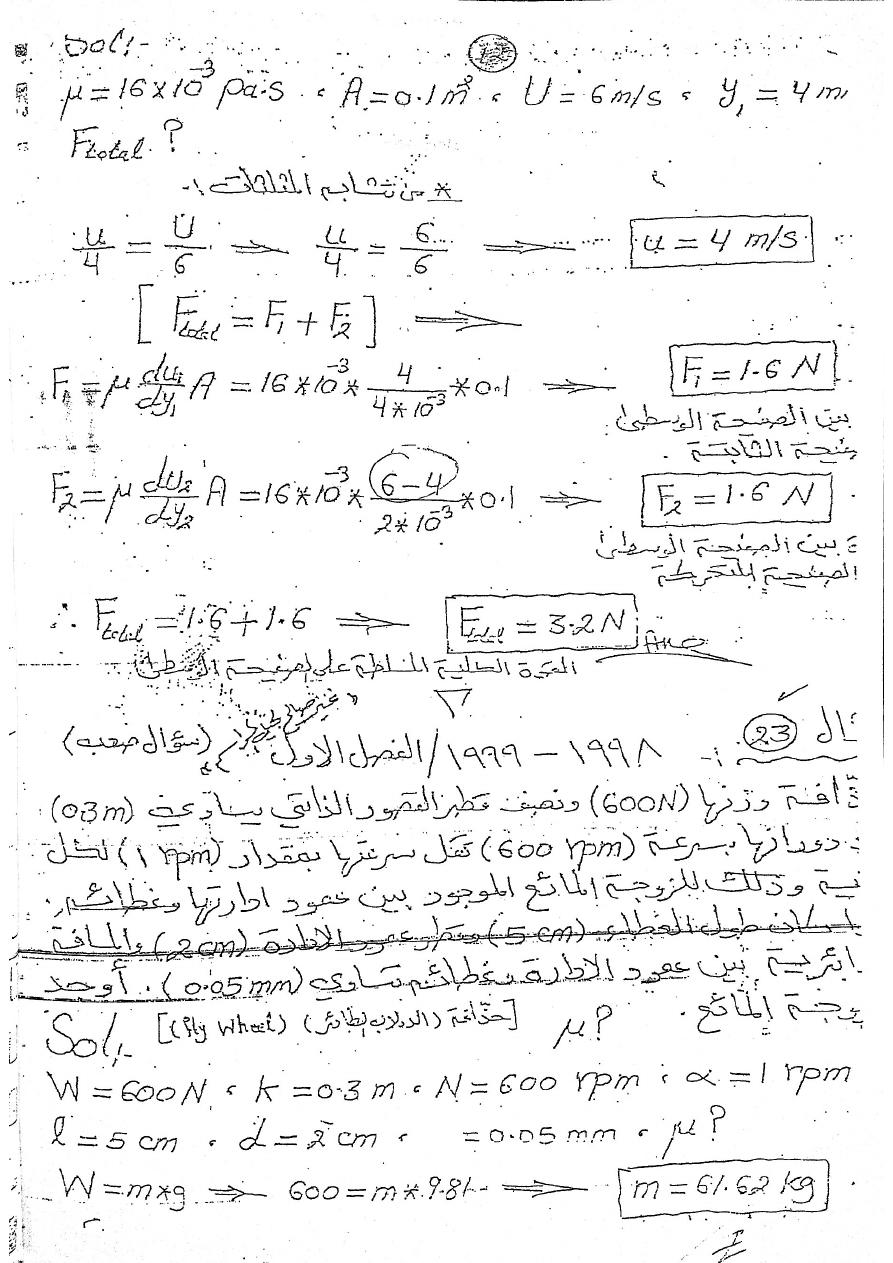 Sol:-
μ = 16×10⁻³ pa.s ، A = 0.1 m² ، U = 6 m/s ، y₁ = 4 m
F total ?
* من تشابه المثلثات :-
u/4 = U/6 ⟹ u/4 = 6/6 ⟹ u = 4 m/s
[ F total = F₁ + F₂ ] ⟹
F₁ = μ du₁/dy₁ A = 16*10⁻³ * 4/(4*10⁻³) * 0.1 ⟹ F₁ = 1.6 N
بين الصفيحة الوسطى
الثابتة .
F₂ = μ du₂/dy₂ A = 16*10⁻³ * (6-4)/(2*10⁻³) * 0.1 ⟹ F₂ = 1.6 N
بين الصفيحة الوسطى
الصفيحة المتحركة
∴ F total = 1.6 + 1.6 ⟹ F total = 3.2 N Ans
القوة الكلية المسلطة على الصفيحة الوسطى
23 :- ١٩٩٨ - ١٩٩٩ / الفصل الاول (سؤال صعب)
وزنها (600N) ونصف قطر القصور الذاتي يساوي (0.3m)
دورانها بسرعة (600 rpm) تقل سرعتها بمقدار (1 rpm) لكل
وذلك للزوجة المائع الموجود بين عمود ادارتها وغطائه.
كان طول الغطاء (5 cm) وقطر عمود الادارة (2 cm) والمسافة
بين عمود الادارة وغطائه تساوي (0.05 mm) . أوجد
المائع . μ?
Sol:- [(Fly Wheel) (الدولاب الطائر) حذافة]
W = 600 N ، k = 0.3 m ، N = 600 rpm ، α = 1 rpm
l = 5 cm ، d = 2 cm ، = 0.05 mm ، μ?
W = m*g ⟹ 600 = m*9.81 ⟹ m = 61.62 kg